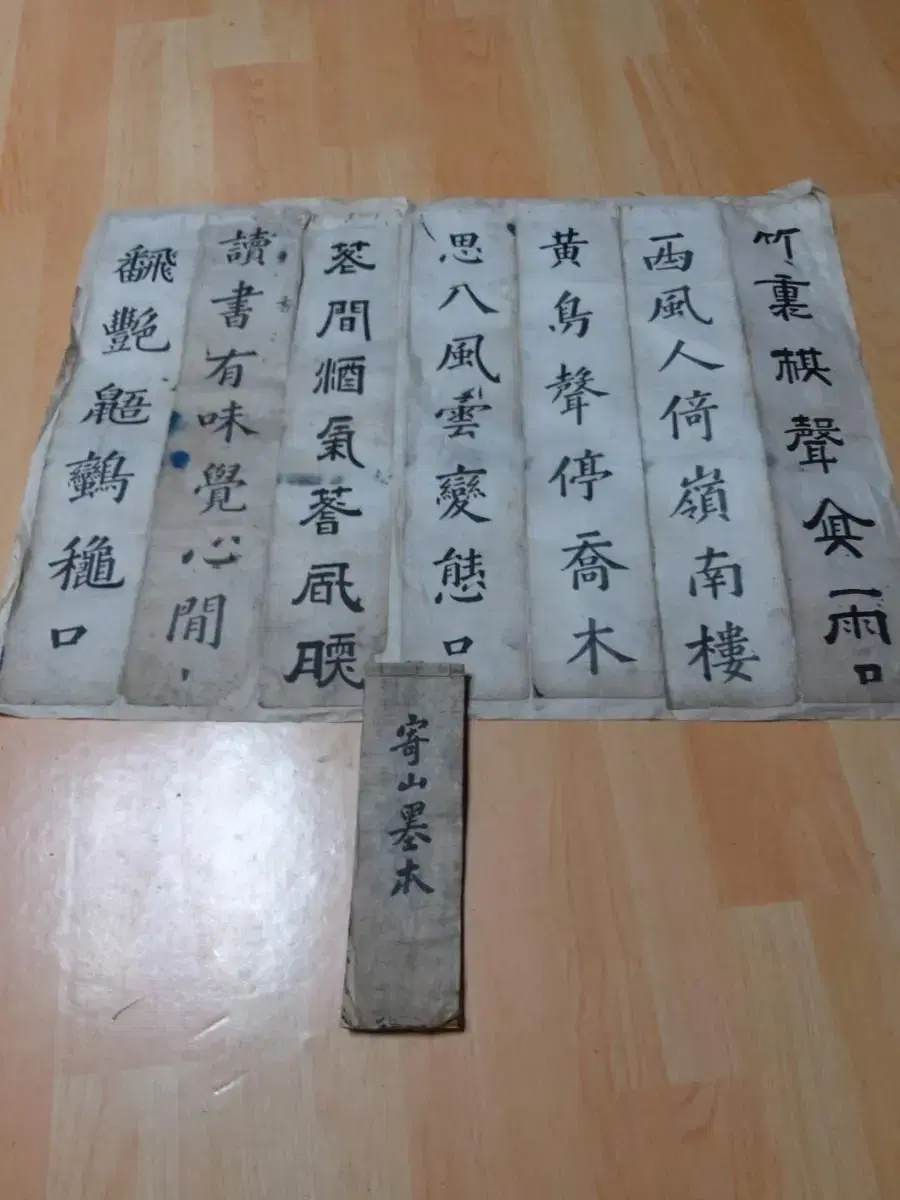 竹裏棋聲暮雨口
西風人倚嶺南樓
黄鳥聲停喬木
思入風雲變態口
花間酒氣春風暖
讀書有味覺心閒
飜艷鼯鸞龝口
寄山墨本